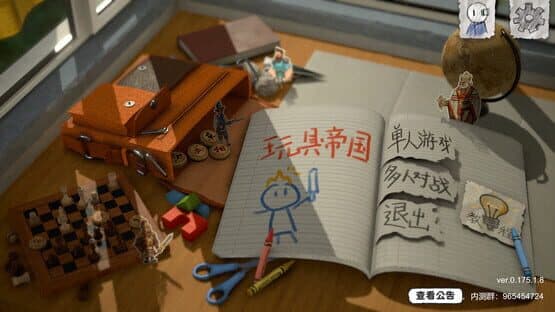 玩具帝国
单人游戏
多人对战
退出
ver.0.175.1.6
查看公告
内测群：905454724